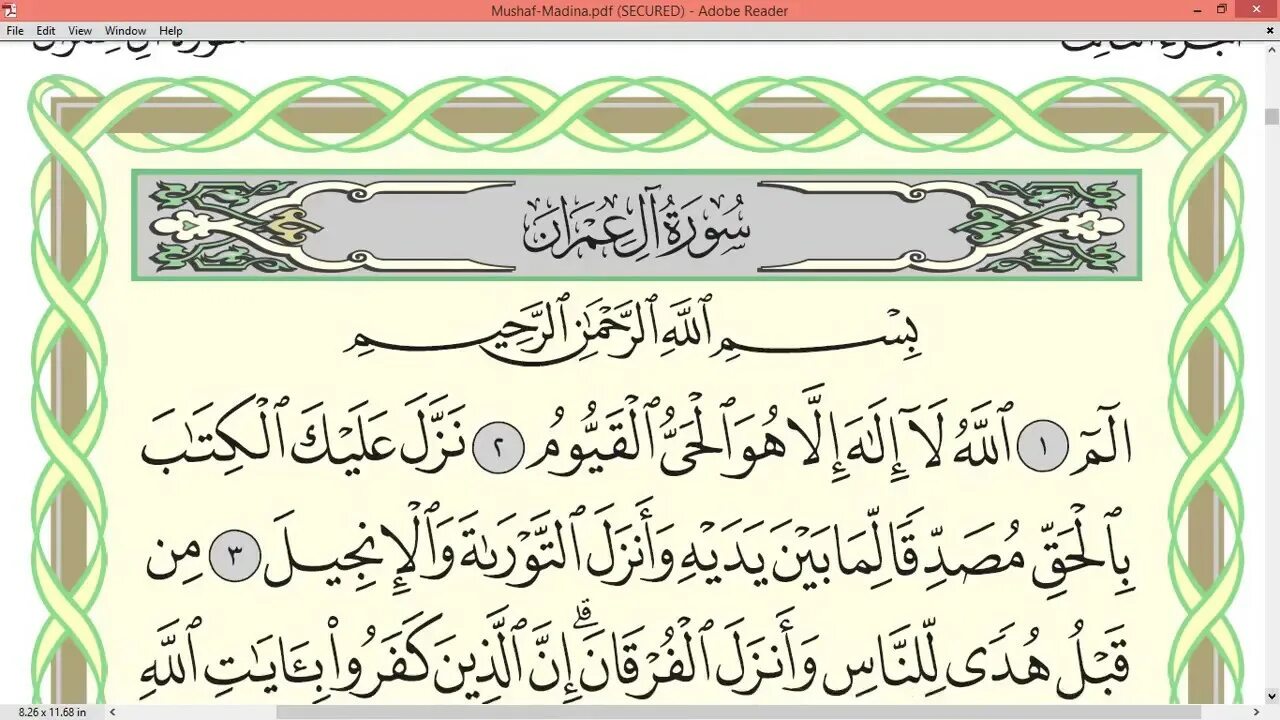 Mushaf-Madina.pdf (SECURED) - Adobe Reader
File Edit View Window Help
سُورَةُ آلِ عِمْرَانَ
بِسْمِ ٱللَّهِ ٱلرَّحْمَٰنِ ٱلرَّحِيمِ
الٓمٓ ١ ٱللَّهُ لَآ إِلَٰهَ إِلَّا هُوَ ٱلْحَىُّ ٱلْقَيُّومُ ٢ نَزَّلَ عَلَيْكَ ٱلْكِتَٰبَ
بِٱلْحَقِّ مُصَدِّقًا لِّمَا بَيْنَ يَدَيْهِ وَأَنزَلَ ٱلتَّوْرَىٰةَ وَٱلْإِنجِيلَ ٣ مِن
قَبْلُ هُدًى لِّلنَّاسِ وَأَنزَلَ ٱلْفُرْقَانَ ۗ إِنَّ ٱلَّذِينَ كَفَرُوا۟ بِـَٔايَٰتِ ٱللَّهِ
8.26 x 11.68 in